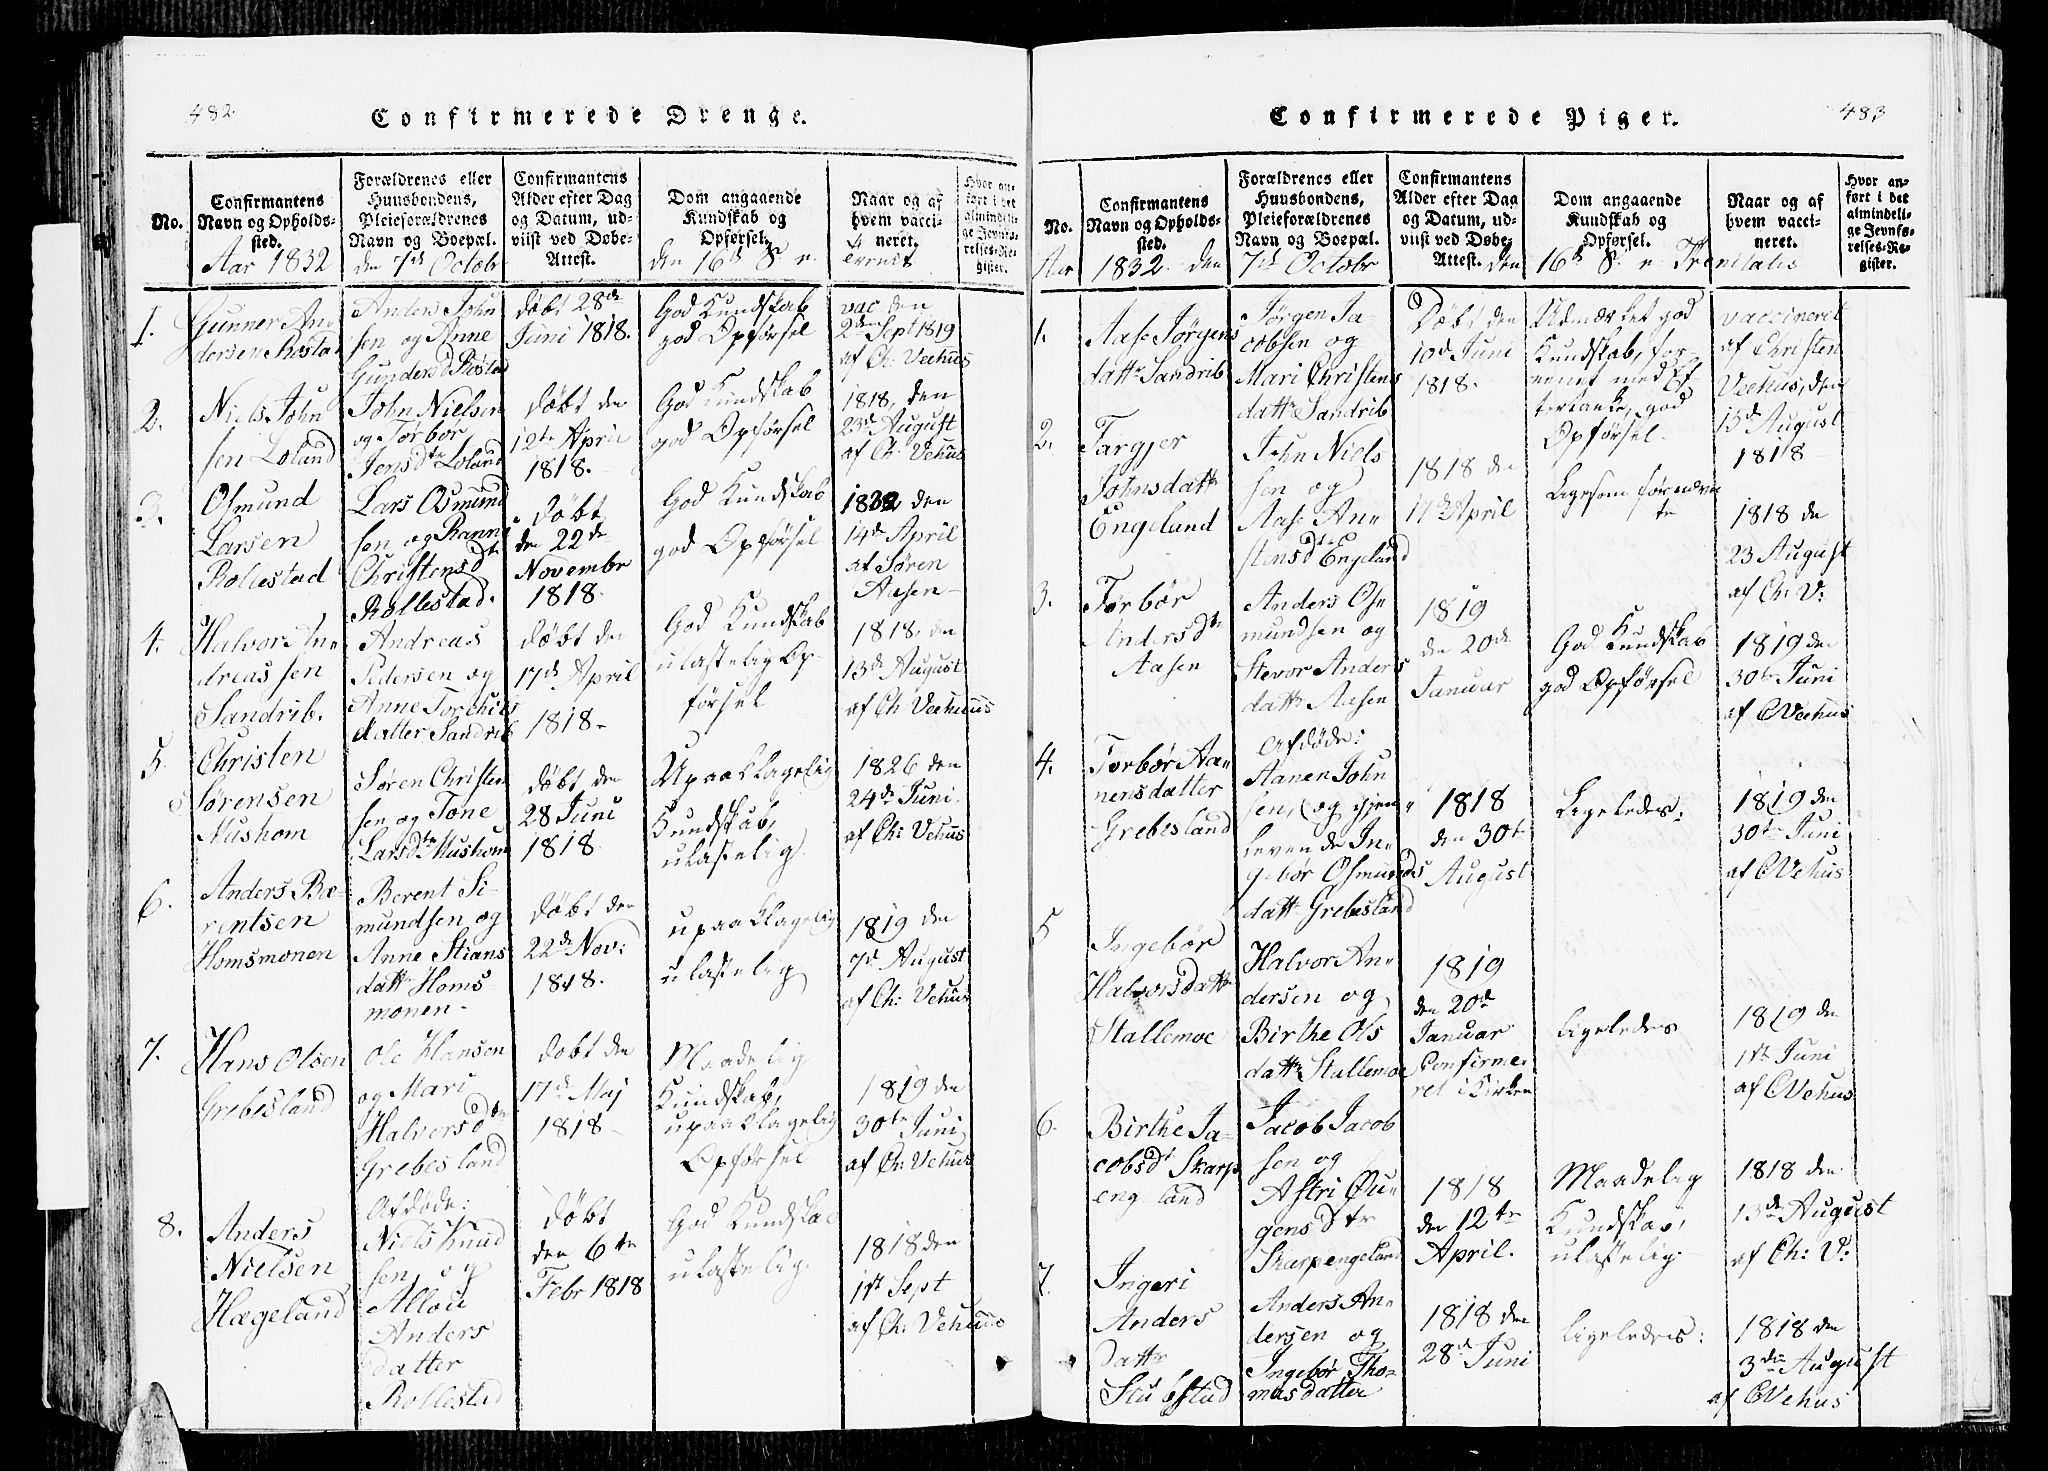 482.
Confirmerede Drenge.
No.
Confirmantens
Navn og Opholds-
sted.
Forældrenes eller
Huusbondens,
Pleieforældrenes
Navn og Boepæl.
Confirmantens
Alder efter Dag
og Datum, ud-
viist ved Døbe-
Attest.
Dom angaaende
Kundskab og
Opførsel.
Naar og af
hvem vacci-
neret.
Hvor an-
ført i det
almindeli-
ge Jevnfø-
relses-Re-
gister.
Aar 1832
den 7de Octobr
den 16de S. e.
1.
Gunner An-
dersen Røstad
Anders John
sen og Anne
Gundersd Røstad
døbt 28de
Juni 1818.
God Kundskab
god Opførsel
vac den
2den Sept 1819
af Ch: Veehuus
2.
Niels John
sen Løland
John Nielsen
og Torbør
Jensdtr Løland
døbt den
12te April
1818.
God Kundskab
god Opførsel
1818, den
23de August
af Ch: Vehuus
3.
Osmund
Larsen
Rollestad
Lars Osmund
sen og Ranni
Christensdtr
Rollestad.
døbt
den 22de
Novembr
1818.
God Kundskab
god Opførsel
1832 den
14de April
af Søren
Aasen
4.
Halvor An-
dreassen
Sandrib.
Andreas
Pedersen og
Anne Torchils
datter Sandrib
døbt den
17de April
1818
God Kundskab
ulastelig Op-
førsel
1818, den
13de August
af Ch Veehuus
5.
Christen
Sørensen
Mushom
Søren Christen
sen og Tone
Larsdtr Mushom
døbt den
28 Juni
1818
Upaaklagelig
Kundskab,
ulastelig
1826 den
24de Juni
af Ch: Vehuus
6.
Anders Be-
rentsen
Homsmonen
Berent Si-
mundsen og
Anne Stians
dattr Homs-
monen
døbt den
22de Nov:
1818.
upaaklagelig
ulastelig
1819 den
7de August
af Ch: Vehuus
7.
Hans Olsen
Grebesland
Ole Hansen
og Mari
Halvorsdtr
Grebesland
døbt den
17de Maj
1818
Maadelig
Kundskab,
upaaklagelig
Opførsel
1819 den
30te Juni
af Ch: Vehuus
8.
Anders
Nielsen
Hægeland
Afdøde:
Niels Knud
sen og
Allou
Anders
datter
Rollestad
døbt
den 6te
Febr 1818
God Kundskab
ulastelig
1818 den
1ste Sept
af Ch: Vehuus
483
Confirmerede Piger.
No.
Confirmantens
Navn og Opholds-
sted.
Forældrenes eller
Huusbondens,
Pleieforældrenes
Navn og Boepæl.
Confirmantens
Alder efter Dag
og Datum, ud-
viist ved Døbe-
Attest.
Dom angaaende
Kundskab og
Opførsel.
Naar og af
hvem vacci-
neret.
Hvor an-
ført i det
almindeli-
ge Jevnfø-
relses-Re-
gister.
Aar 1832 den 7de Octobr den 16de S. e. Trenitatis
1.
Aase Jørgens
dattr Sandrib
Jørgen Ja-
cobsen og
Mari Christens
dattr Sandrib
Døbt den
10de Juni
1818.
Udmærket god
Kundskab, for-
eenet med Ef
tertanke, god
Opførsel
vaccineret
af Christen
Veehus, den
13de August
1818
2.
Targjer
Johnsdattr
Engeland
John Niels
sen og
Aase An-
stensdtr Engeland
1818 den
17de April
Ligesom førnævn
te
1818 den
23 August
af Ch: V:
3.
Torbør
Andersdtr
Aasen
Anders Os-
mundsen og
Stevor Anders
dattr Aasen
1819
den 20de
Januar
God Kundskab
god Opførsel
1819 den
30te Juni
af C Veehus
4.
Torbør Aa-
nensdatter
Grebesland
Afdøde:
Aanen John
sen, og gjen-
levende In-
gebør Osmunds
dattr Grebesland
1818
den 30te
August
Ligeledes:
1819 den
30te Juni
af C Vehus
5
Ingebør
Halvorsdattr
Stallemoe
Halvor An-
dersen og
Birthe Ols
dattr Stallemoe
1819
den 20de
Januar
Confirme-
ret i Kirken
Ligeledes
1819 den
1ste Juni
af C Vehus
6.
Birthe Ja-
cobsdt Skarp
england
Jacob Jacob
sen og
Astri Ou-
gensdtr
Skarpengeland
1818
den 12te
April.
Maadelig
Kundskab,
ulastelig
1818 den
13de August
af Ch: V:
7.
Ingeri
Anders
dattr
Stubstad
Anders An-
dersen og
Ingebør Tho-
masdatter
1818 den
28de Juni
Ligeledes:
1818 den
3die August
af C Vehus